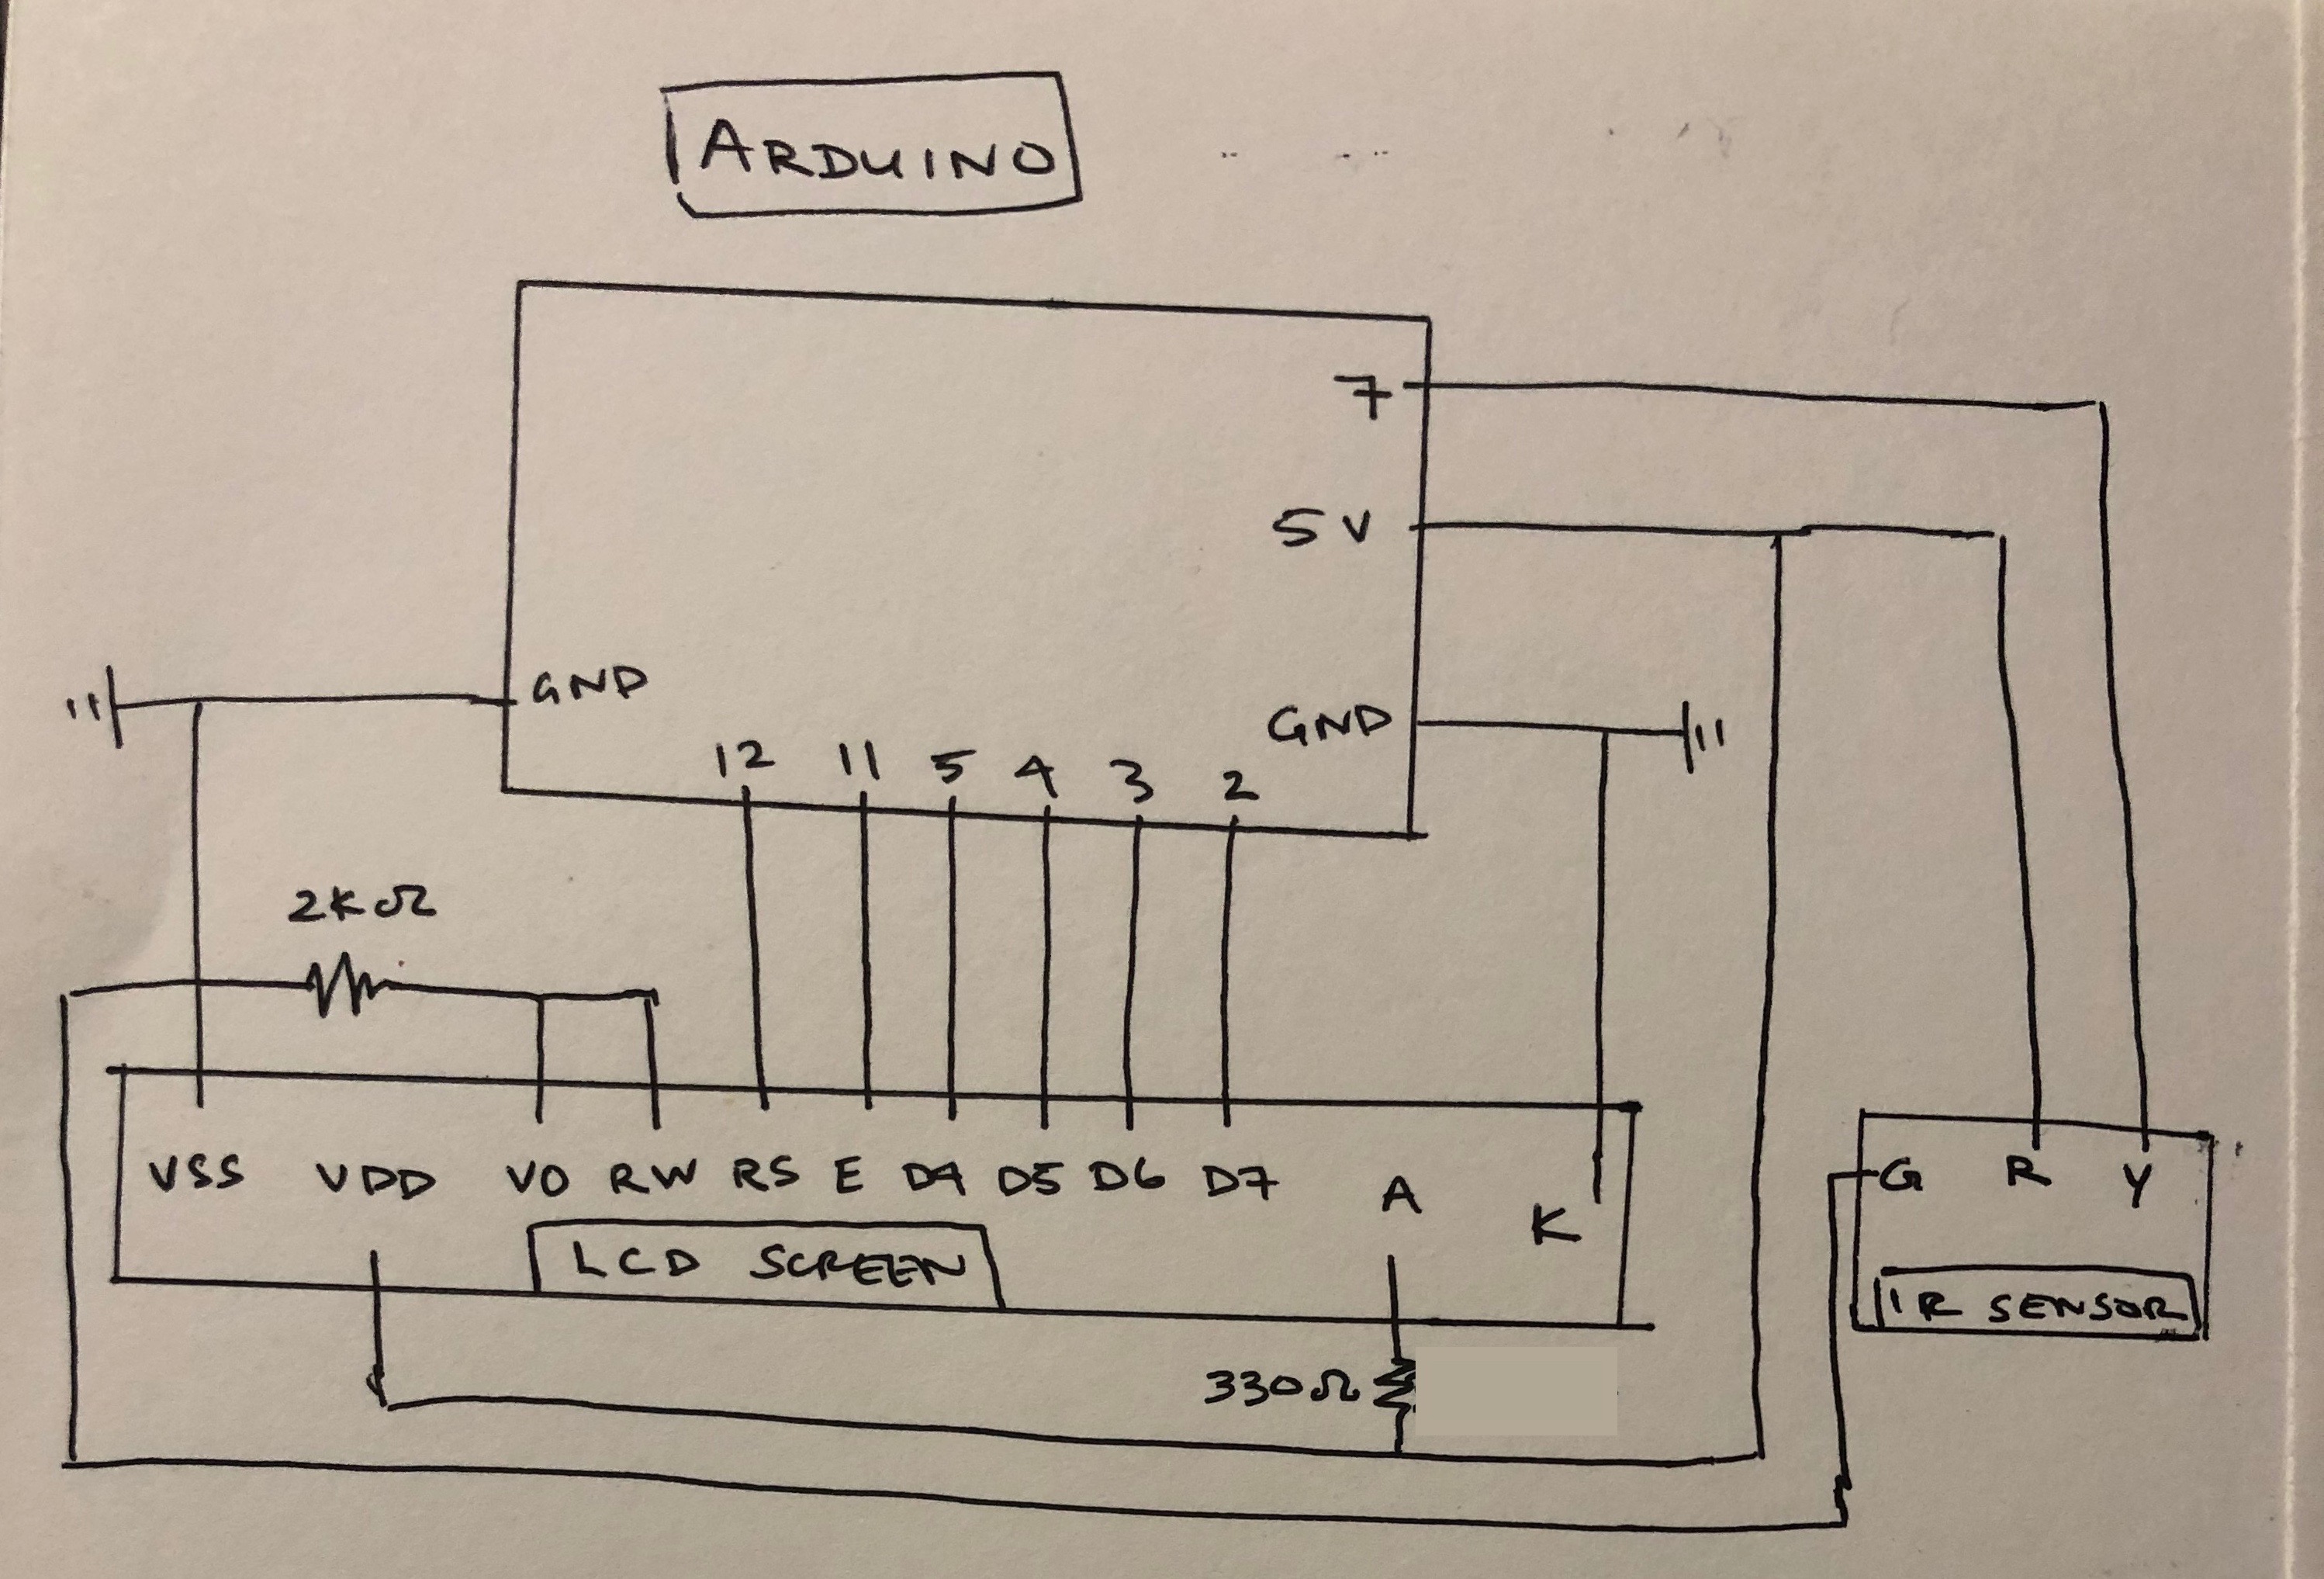 ARDUINO
7
5V
GND
GND
12 11 5 4 3 2
2KΩ
VSS VDD VO RW RS E D4 D5 D6 D7 A K
G R Y
LCD SCREEN
IR SENSOR
330Ω